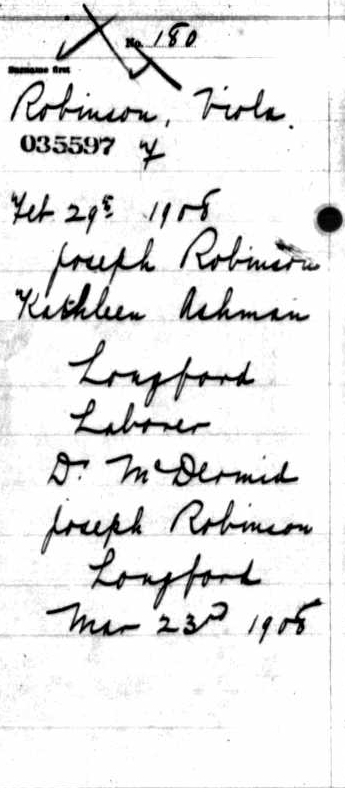 No. 180
Surname first
Robinson, Viola.
035597 F
Feb 29th 1908
Joseph Robinson
Kathleen Ashman
Longford
Laborer
Dr McDermid
Joseph Robinson
Longford
Mar 23rd 1908